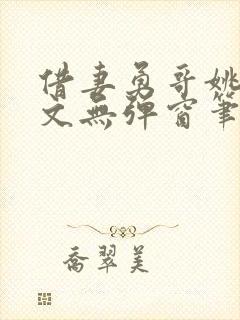 借妻勇哥姚
文無彈窗筆
喬翠美